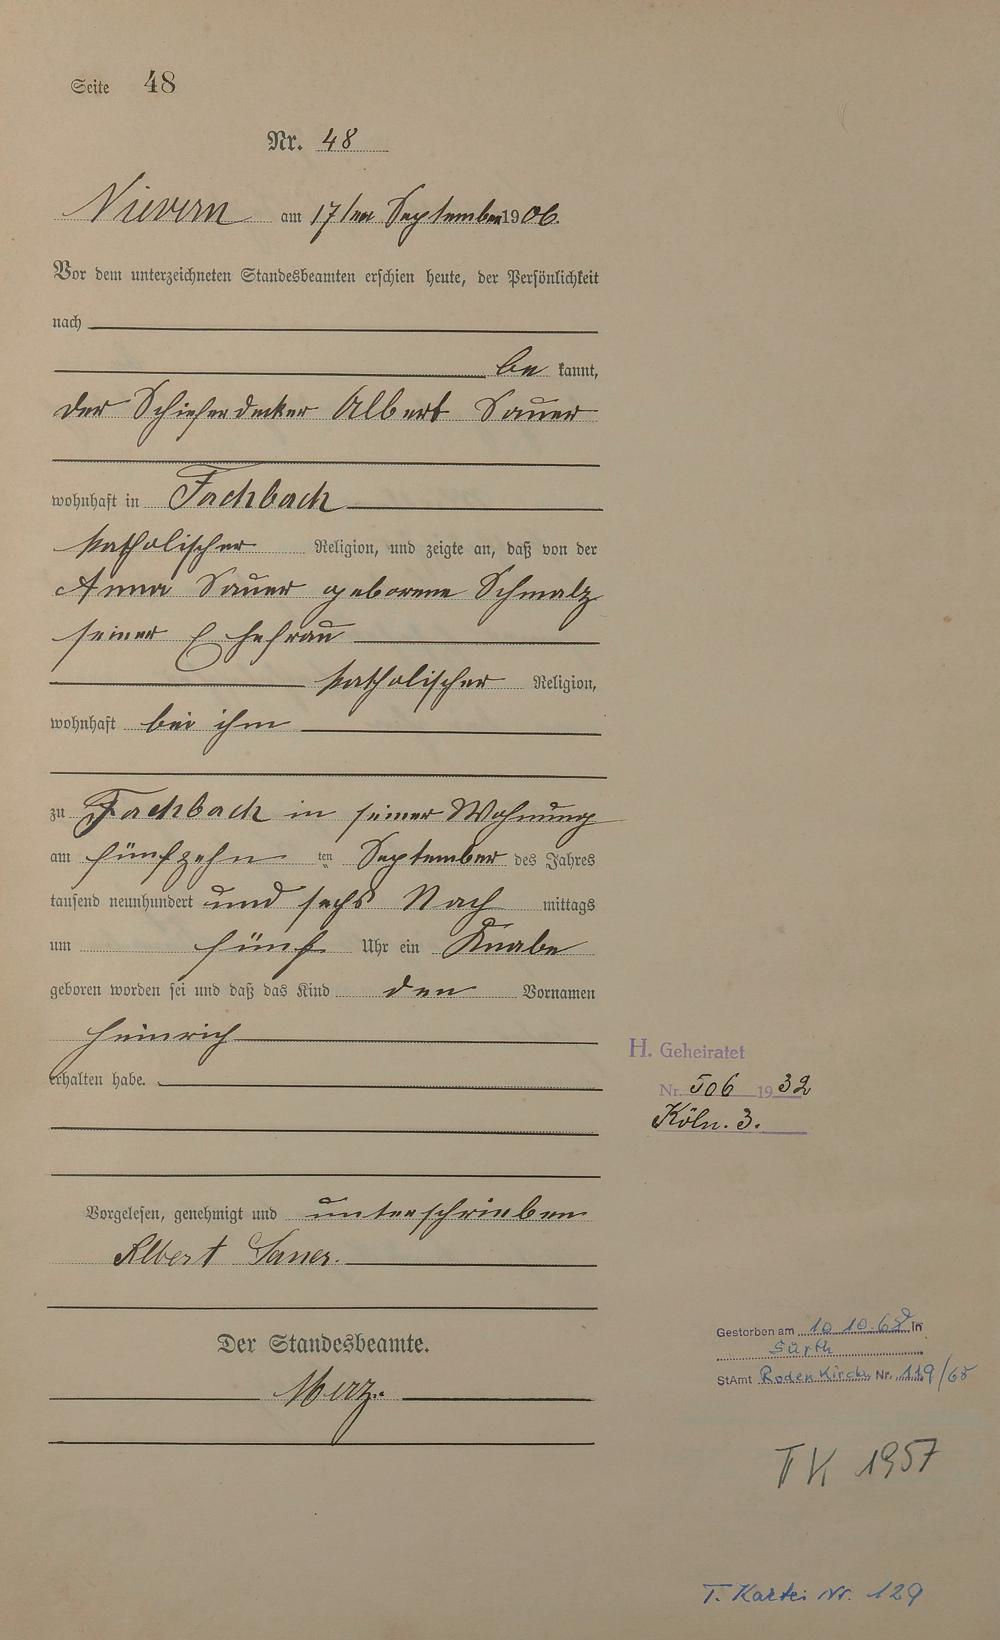 Seite 48
Nr. 48
Nievern am 17ten September 1906.
Vor dem unterzeichneten Standesbeamten erschien heute, der Persönlichkeit
nach
be kannt,
der Schieferdecker Albert Sauer
wohnhaft in Fachbach
katholischer Religion, und zeigte an, daß von der
Anna Sauer geborene Schmalz
seiner Ehefrau
katholischer Religion,
wohnhaft bei ihm
zu Fachbach in seiner Wohnung
am fünfzehn ten September des Jahres
tausend neunhundert und sechs Nach mittags
um fünf Uhr ein Knabe
geboren worden sei und daß das Kind den Vornamen
Heinrich
erhalten habe.
H. Geheiratet
Nr. 506 1932
Köln. 3.
Vorgelesen, genehmigt und unterschrieben
Albert Sauer.
Der Standesbeamte.
Merz.
Gestorben am 10.10.68 in
Sürth
StAmt Rodenkirch. Nr. 119/68
TK 1957
T. Kartei Nr. 129